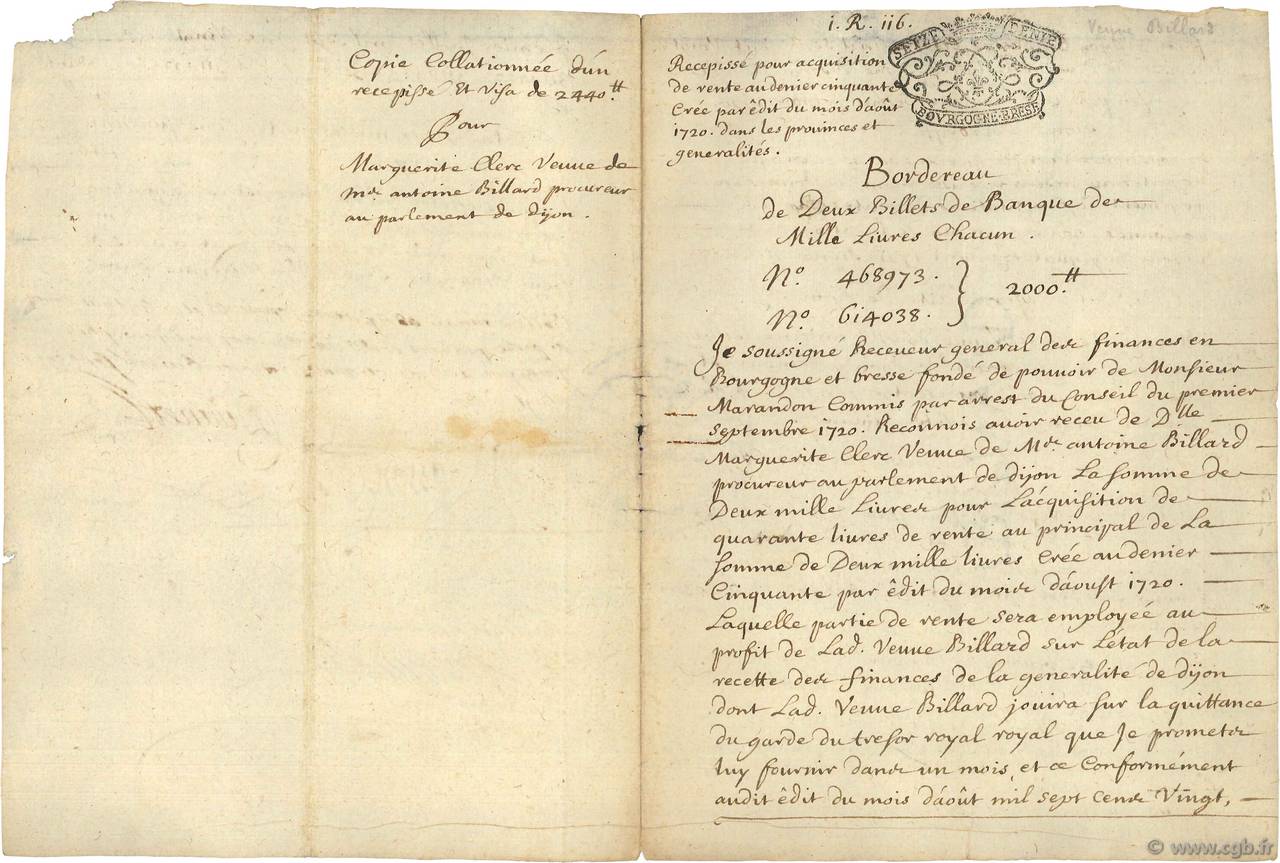 Copie Collationnée d'un
recepissé Et Visa de 2440.tt
Pour
Marguerite Clerc Veuve de
Mre antoine Billard procureur
au parlement de dijon.
1. R. 116.
Veuve Billard
SEIZE DENIE
BOVRGOGNE BRESE
Recepissé pour acquisition
de rente au denier cinquante
Crée par êdit du mois d'août
1720. dans les provinces et
generalités.
Bordereau
de Deux Billets de Banque de
Mille Livres Chacun.
No. 468973.
2000.tt
No. 614038.
Je soussigné Receveur general des finances en
Bourgogne et bresse fondé de pouvoir de Monsieur
Marandon Commis par arrest du Conseil du premier
Septembre 1720. Reconnois avoir receu de Dlle
Marguerite Clerc Veuve de Mre antoine Billard
procureur au parlement de dijon La Somme de
Deux mille Livres pour L'acquisition de
quarante livres de rente au principal de La
Somme de Deux mille livres Crée au denier
Cinquante par êdit du mois d'aoust 1720.
Laquelle partie de rente sera employeé au
profit de Lad. Veuve Billard sur L'état de la
recette des finances de la generalité de dijon
dont Lad. Veuve Billard jouira sur la quittance
du garde du tresor royal royal que Je promets
luy fournir dans un mois, et ce Conformément
audit êdit du mois d'août mil sept cens Vingt,
© www.cgb.fr